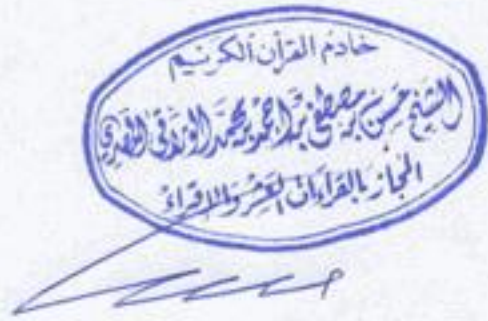 خادم القرآن الكريم
الشيخ حسن بن مصطفى بن أحمد بن محمد الوراقي المصري
المجاز بالقراءات العشر والإقراء